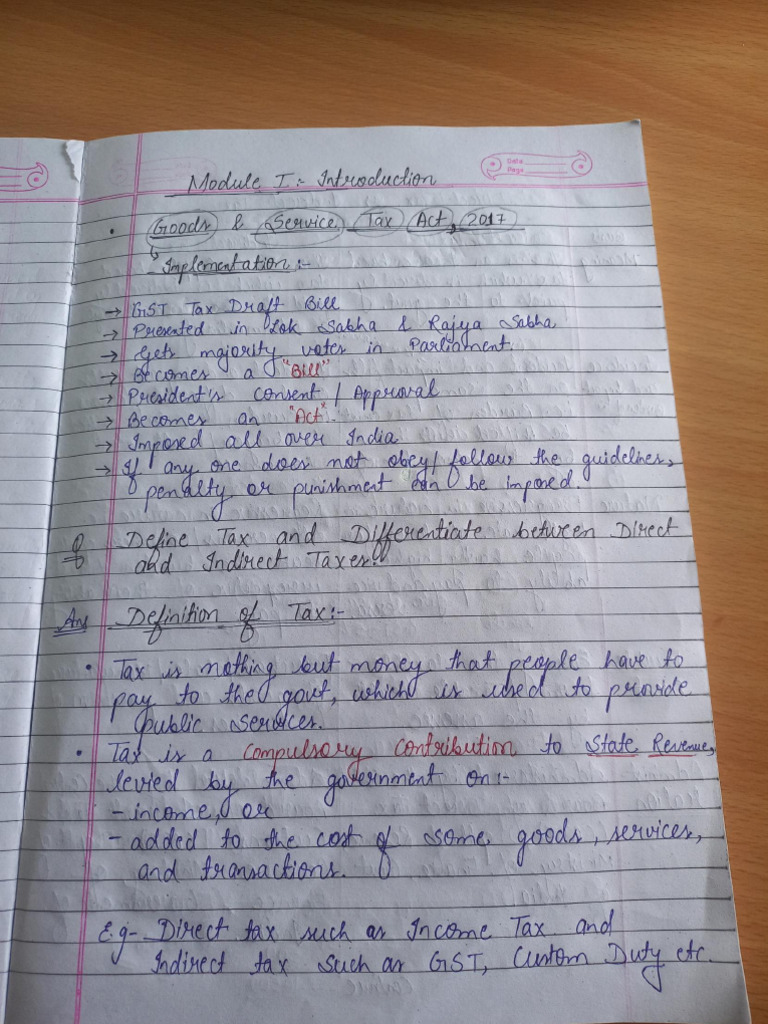 Date
Page
Module I :- Introduction
• Goods & Service Tax Act, 2017
↳ Implementation :-
→ GST Tax Draft Bill
→ Presented in Lok Sabha & Rajya Sabha
→ Gets majority votes in Parliament.
→ Becomes a "Bill"
→ President's Consent / Approval
→ Becomes an "Act".
→ Imposed all over India
→ If any one does not obey/follow the guidelines,
penalty or punishment can be imposed.
Q Define Tax and Differentiate between Direct
and Indirect Taxes.
Ans Definition of Tax :-
• Tax is nothing but money that people have to
pay to the govt, which is used to provide
public services.
• Tax is a compulsory contribution to State Revenue,
levied by the government on :-
- income, or
- added to the cost of some goods, services,
and transactions.
E.g- Direct tax such as Income Tax and
Indirect tax such as GST, Custom Duty etc.